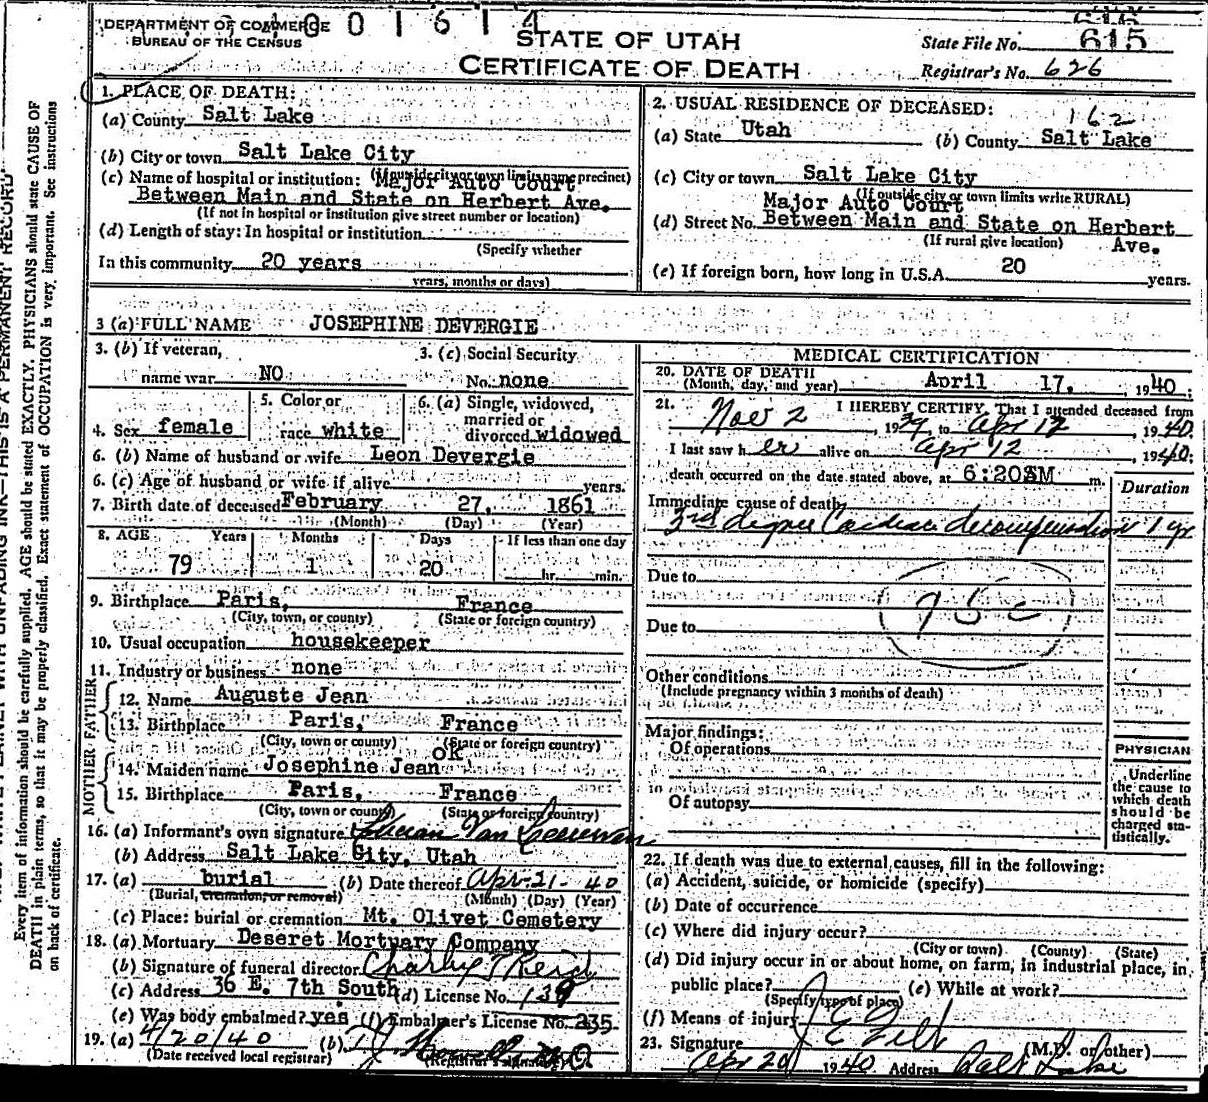 DEPARTMENT OF COMMERCE
BUREAU OF THE CENSUS
1001614
STATE OF UTAH
CERTIFICATE OF DEATH
State File No. 615
Registrar's No. 626
1. PLACE OF DEATH:
(a) County Salt Lake
(b) City or town Salt Lake City
(If outside city or town limits name precinct)
(c) Name of hospital or institution: Major Auto Court
Between Main and State on Herbert Ave.
(If not in hospital or institution give street number or location)
(d) Length of stay: In hospital or institution
(Specify whether
In this community 20 years
years, months or days)
2. USUAL RESIDENCE OF DECEASED:
162
(a) State Utah (b) County Salt Lake
(c) City or town Salt Lake City
(If outside city or town limits write RURAL)
Major Auto Court
(d) Street No. Between Main and State on Herbert
(If rural give location) Ave.
(e) If foreign born, how long in U.S.A. 20 years.
3 (a) FULL NAME JOSEPHINE DEVERGIE
3. (b) If veteran,
name war NO
3. (c) Social Security
No. none
4. Sex female
5. Color or
race white
6. (a) Single, widowed,
married or
divorced widowed
6. (b) Name of husband or wife Leon Devergie
6. (c) Age of husband or wife if alive years.
7. Birth date of deceased February 27, 1861
(Month) (Day) (Year)
8. AGE Years Months Days If less than one day
79 1 20 hr. min.
9. Birthplace Paris, France
(City, town, or county) (State or foreign country)
10. Usual occupation housekeeper
11. Industry or business none
FATHER
12. Name Auguste Jean
13. Birthplace Paris, France
(City, town or county) (State or foreign country)
MOTHER
ok
14. Maiden name Josephine Jean
15. Birthplace Paris, France
(City, town or county) (State or foreign country)
16. (a) Informant's own signature Van
(b) Address Salt Lake City, Utah
17. (a) burial (b) Date thereof Apr-21-40
(Burial, cremation, or removal) (Month) (Day) (Year)
(c) Place: burial or cremation Mt. Olivet Cemetery
18. (a) Mortuary Deseret Mortuary Company
(b) Signature of funeral director
(c) Address 36 E. 7th South (d) License No. 139
(e) Was body embalmed? yes (f) Embalmer's License No. 235
19. (a) 4/20/40 (b)
(Date received local registrar) (Registrar's signature)
MEDICAL CERTIFICATION
20. DATE OF DEATH
(Month, day, and year) April 17, 1940;
21. I HEREBY CERTIFY, That I attended deceased from
Nov 2, 1939, to Apr 12, 1940.
I last saw her alive on Apr 12, 1940;
death occurred on the date stated above, at 6:20AM m.
Duration
Immediate cause of death
3rd degree Cardiac decompensation 1 yr
Due to
75c
Due to
Other conditions
(Include pregnancy within 3 months of death)
Major findings:
Of operations
Of autopsy
PHYSICIAN
Underline
the cause to
which death
should be
charged sta-
tistically.
22. If death was due to external causes, fill in the following:
(a) Accident, suicide, or homicide (specify)
(b) Date of occurrence
(c) Where did injury occur?
(City or town) (County) (State)
(d) Did injury occur in or about home, on farm, in industrial place, in
public place? (e) While at work?
(Specify type of place)
(f) Means of injury
23. Signature (M.D. or other)
Apr 20 1940 Address Salt Lake
Every item of information should be carefully supplied. AGE should be stated EXACTLY. PHYSICIANS should state CAUSE OF
DEATH in plain terms, so that it may be properly classified. Exact statement of OCCUPATION is very important. See instructions
on back of certificate.